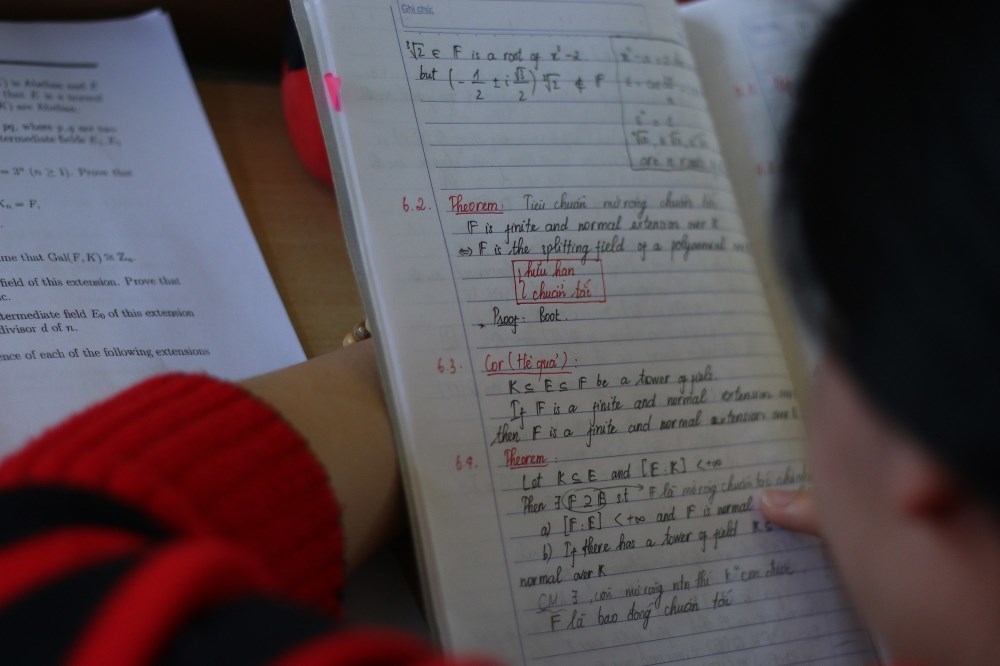 ) is Abelian and E
that E is a normal
K) are Abelian.
pq, where p, q are two
termediate fields E₁, E₂
= 3ⁿ (n ≥ 1). Prove that
Kₙ = F,
me that Gal(F, K) ≅ Zₙ.
field of this extension. Prove that
ic.
termediate field E₀ of this extension
divisor d of n.
ence of each of the following extensions
Ghi chú:
∛2 ∈ F is a root of x³-2
but (-1/2 ± i √3/2) ∛2 ∉ F
are n roots
6.2. Theorem: Tiêu chuẩn mở rộng chuẩn tắc
F is finite and normal extension over K
⇔ F is the splitting field of a polynomial
hữu hạn
chuẩn tắc
Proof: Book.
6.3. Cor (Hệ quả):
K ⊆ E ⊆ F be a tower of fields.
If F is a finite and normal extension
then F is a finite and normal extension over
6.4. Theorem:
Let K ⊆ E and [E:K] < +∞
Then ∃ F ⊇ E s.t F là mở rộng chuẩn tắc
a) [F:E] < +∞ and F is normal
b) If there has a tower of field K ⊆
normal over K
CM ∃
F là bao đóng chuẩn tắc